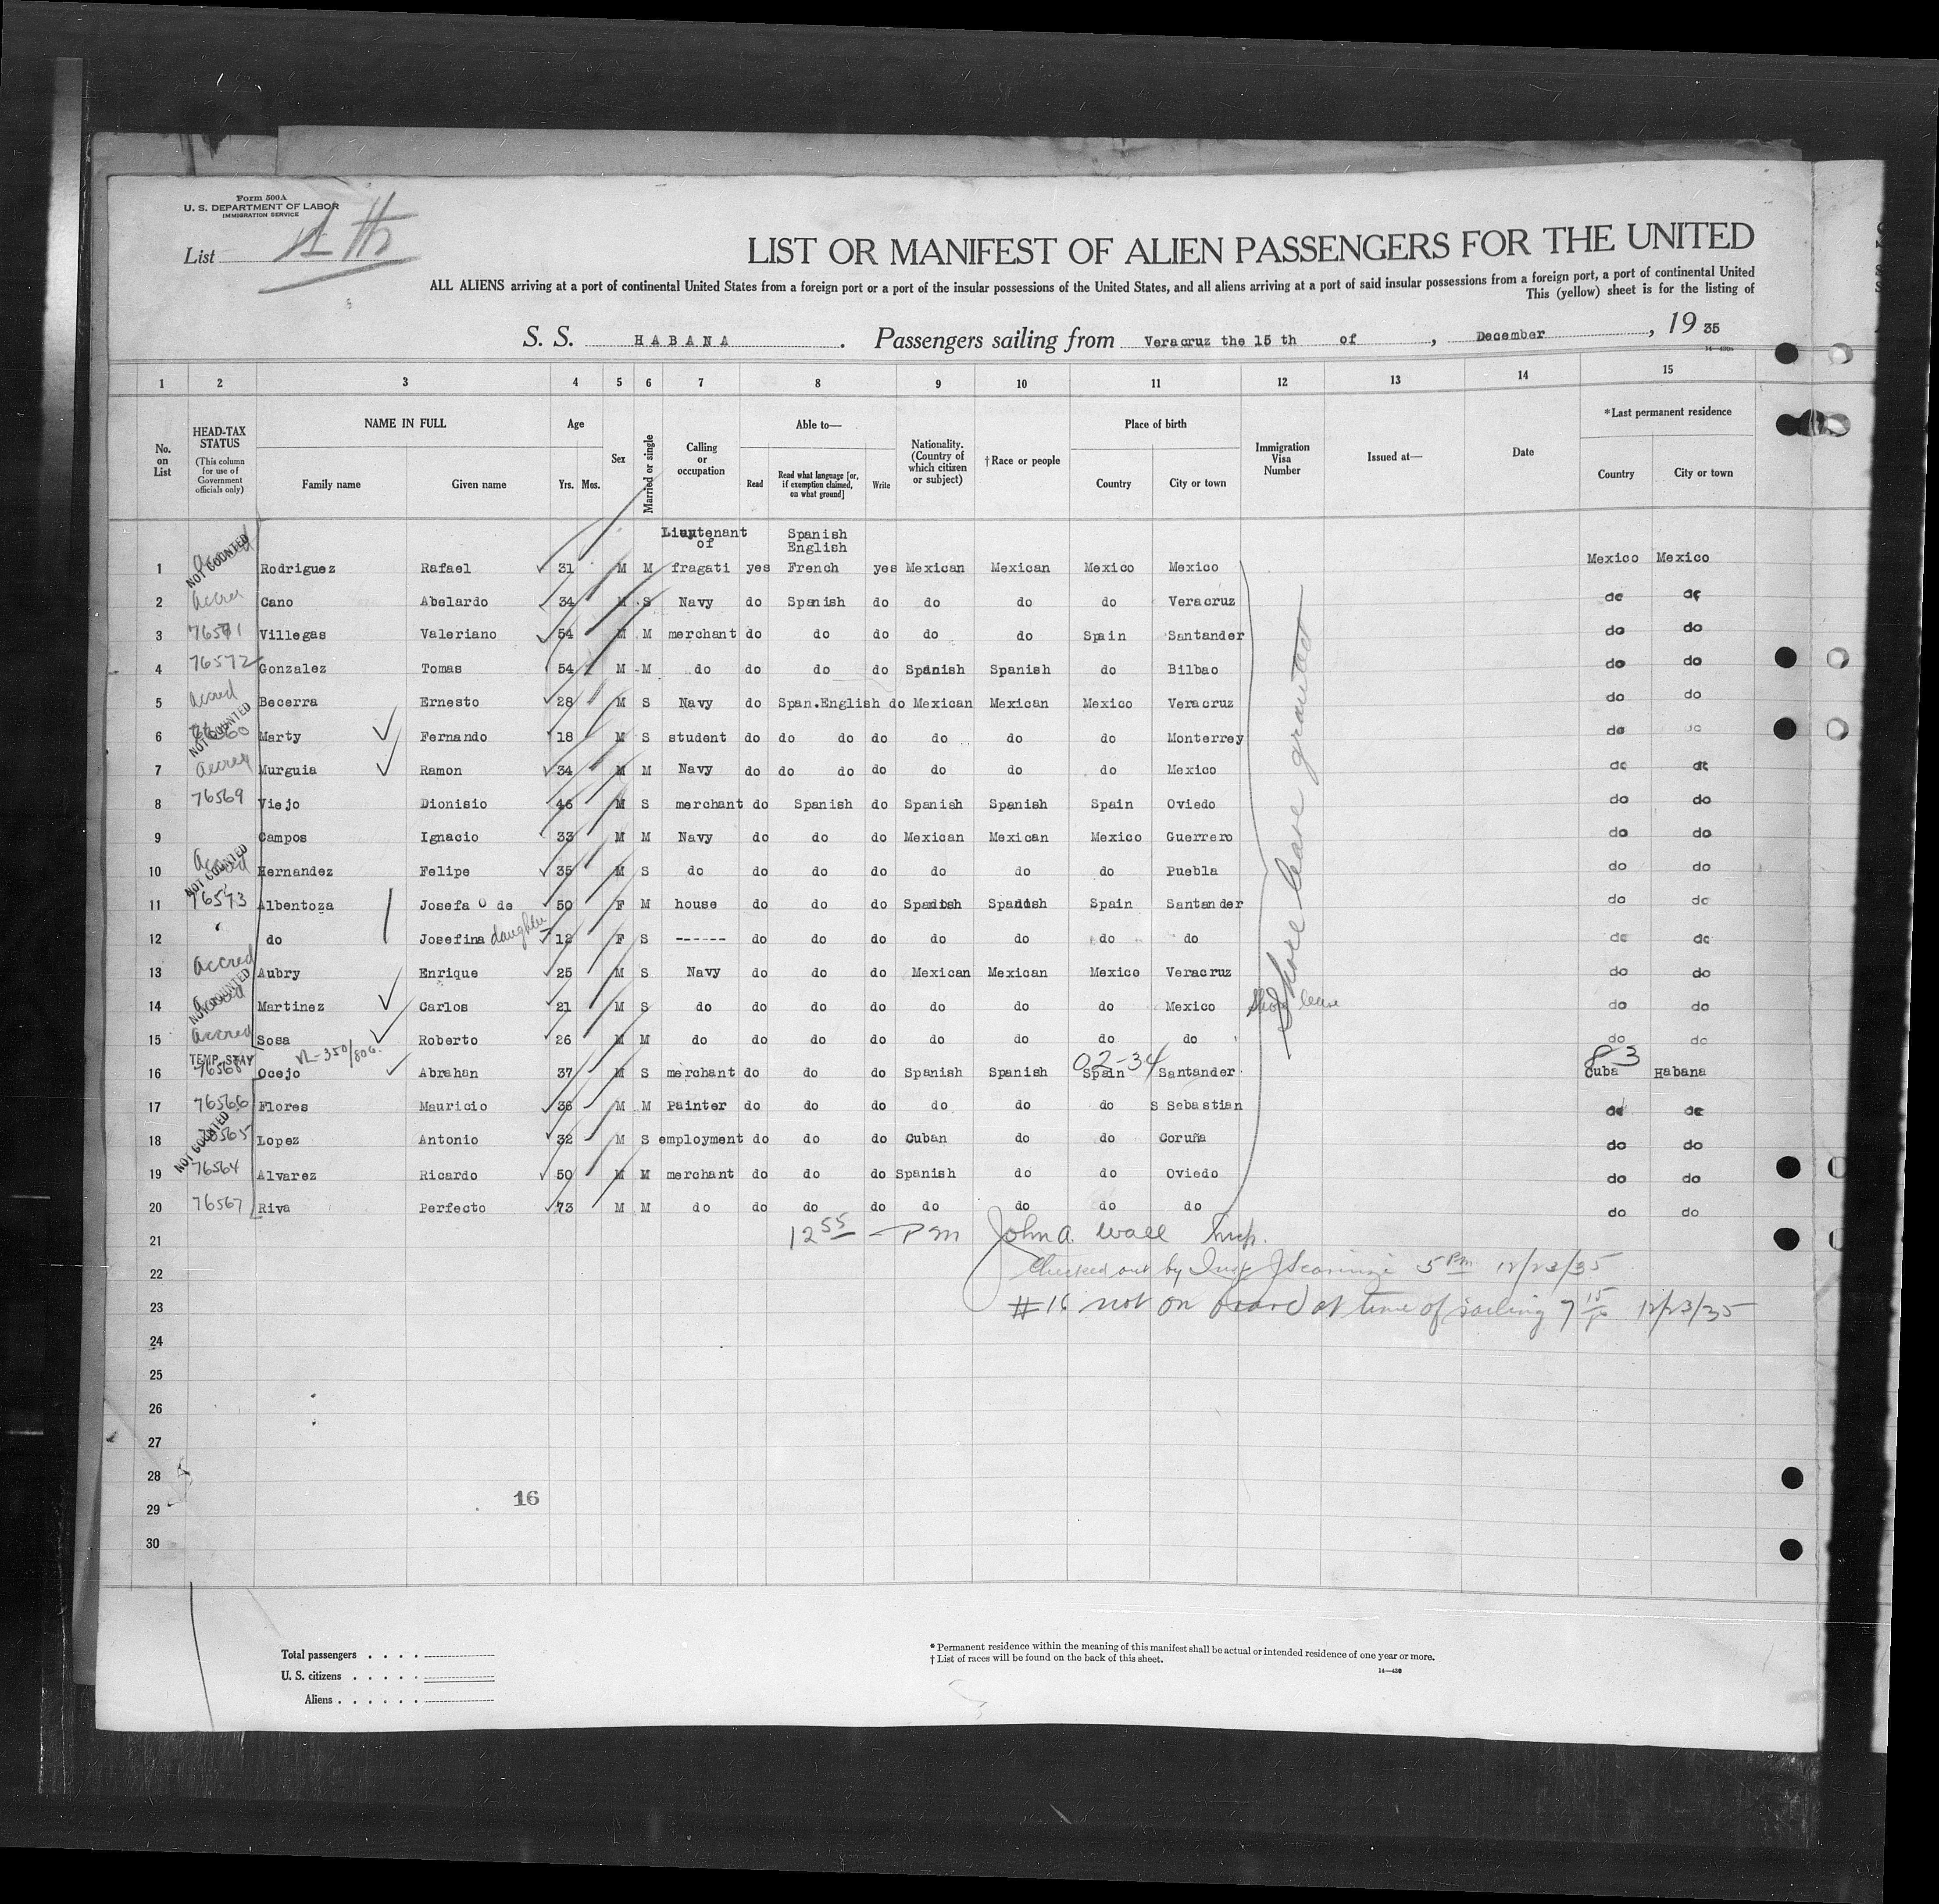 Form 500A
U. S. DEPARTMENT OF LABOR
IMMIGRATION SERVICE
List
LIST OR MANIFEST OF ALIEN PASSENGERS FOR THE UNITED
ALL ALIENS arriving at a port of continental United States from a foreign port or a port of the insular possessions of the United States, and all aliens arriving at a port of said insular possessions from a foreign port, a port of continental United
This (yellow) sheet is for the listing of
S. S. HABANA. Passengers sailing from Veracruz the 15 th of, December, 19 35
1 2 3 4 5 6 7 8 9 10 11 12 13 14 15
No. on List
HEAD-TAX STATUS (This column for use of Government officials only)
NAME IN FULL
Family name Given name
Age
Yrs. Mos.
Sex
Married or single
Calling or occupation
Able to—
Read
Read what language [or, if exemption claimed, on what ground]
Write
Nationality. (Country of which citizen or subject)
†Race or people
Place of birth
Country City or town
Immigration Visa Number
Issued at—
Date
*Last permanent residence
Country City or town
Lieutenant of Spanish English
1 NOT COUNTED Rodriguez Rafael 31 M M fragati yes French yes Mexican Mexican Mexico Mexico Mexico Mexico
2 Accred Cano Abelardo 34 M S Navy do Spanish do do do do Veracruz do do
3 76571 Villegas Valeriano 54 M M merchant do do do do do Spain Santander do do
4 76572 Gonzalez Tomas 54 M M do do do do Spanish Spanish do Bilbao do do
5 Accred Becerra Ernesto 28 M S Navy do Span.English do Mexican Mexican Mexico Veracruz do do
6 NOT COUNTED Marty Fernando 18 M S student do do do do do do do Monterrey do do
7 Accred Murguia Ramon 34 M M Navy do do do do do do do Mexico do do
8 76569 Viejo Dionisio 46 M S merchant do Spanish do Spanish Spanish Spain Oviedo do do
9 Campos Ignacio 33 M M Navy do do do Mexican Mexican Mexico Guerrero do do
10 Accred NOT COUNTED Hernandez Felipe 35 M S do do do do do do do Puebla do do
11 76573 Albentoza Josefa O de 50 F M house do do do Spanish Spanish Spain Santander do do
12 do Josefina daughter 12 F S ------ do do do do do do do do do
13 Accred Aubry Enrique 25 M S Navy do do do Mexican Mexican Mexico Veracruz do do
14 NOT COUNTED Martinez Carlos 21 M S do do do do do do do Mexico Shore leave do do
15 Accred Sosa Roberto 26 M M do do do do do do do do do do
16 TEMP. STAY 76568 Ocejo Abrahan 37 M S merchant do do do Spanish Spanish 02-34 Spain Santander 83 Cuba Habana
17 76566 Flores Mauricio 36 M M Painter do do do do do do S Sebastian do do
18 NOT COUNTED 76565 Lopez Antonio 32 M S employment do do do Cuban do do Coruña do do
19 76564 Alvarez Ricardo 50 M M merchant do do do Spanish do do Oviedo do do
20 76567 Riva Perfecto 73 M M do do do do do do do do do do
Shore leave granted
21 12 55 - PM John A. Wall Insp.
22 Checked out by Insp 5 PM 12/23/35
23 #16 not on board at time of sailing 7 15 12/23/35
24
25
26
27
28
29
30
16
Total passengers . . . .
U. S. citizens . . . . .
Aliens . . . . . .
* Permanent residence within the meaning of this manifest shall be actual or intended residence of one year or more.
† List of races will be found on the back of this sheet.